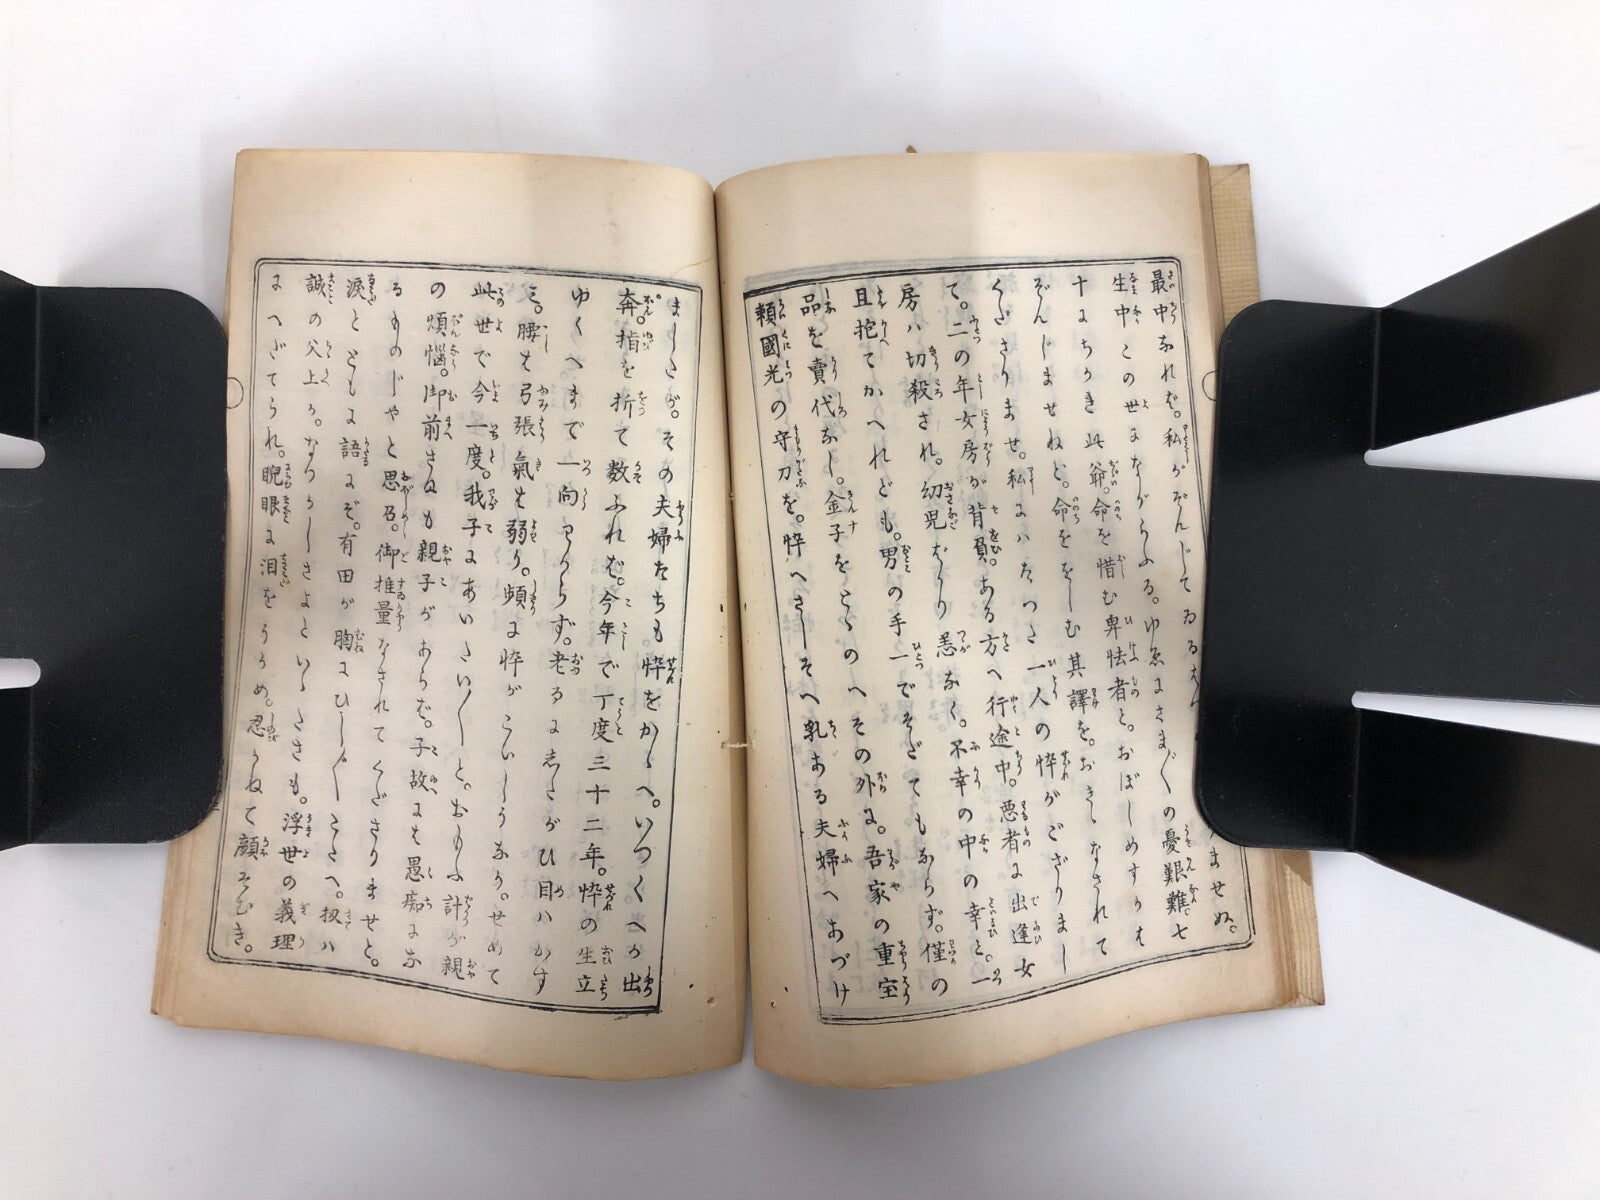 ませぬ。
最中なれば。私がぞんじてゐる
生中この世にながらふる。ゆゑにさま〴〵の憂艱難。七
十にちかき此爺。命を惜む卑怯者と。おぼしめすかは
ぞんじませねど。命ををしむ其譯を。おきゝなされて
くださりませ。私にはたつた一人の悴がござりまし
て。二の年女房が背負。ある方へ行途中。悪者に出逢女
房ハ切殺され。幼児ばかり恙なく。不幸の中の幸と。一
旦抱てかへれども。男の手一でそだてもならず。僅の
品を賣代なし。金子をとゝのへその外に。吾家の重宝
頼國光の守刀を。悴へさしそへ乳ある夫婦へあづけ
ましたが。その夫婦たちも。悴をかゝへ。いづくへか出
奔。指を折て数ふれば。今年で丁度三十二年。悴の生立
ゆくへまで一向わからず。老るにしたがひ目ハかす
み。腰も弓張氣も弱り。頻に悴がこいしうなり。せめて
此世で今一度。我子にあいたい〳〵と。おもふ計が親
の煩悩。御前さぬも親子があらば。子故にも愚痴にな
るものじやと思召。御推量なされてくださりませと。
涙とともに語にぞ。有田が胸にひし〳〵こたへ。扨ハ
誠の父上か。なつかしさよといゝたさも。浮世の義理
にへだてられ。睨眼に泪をうかめ。忍かねて顔そむき。